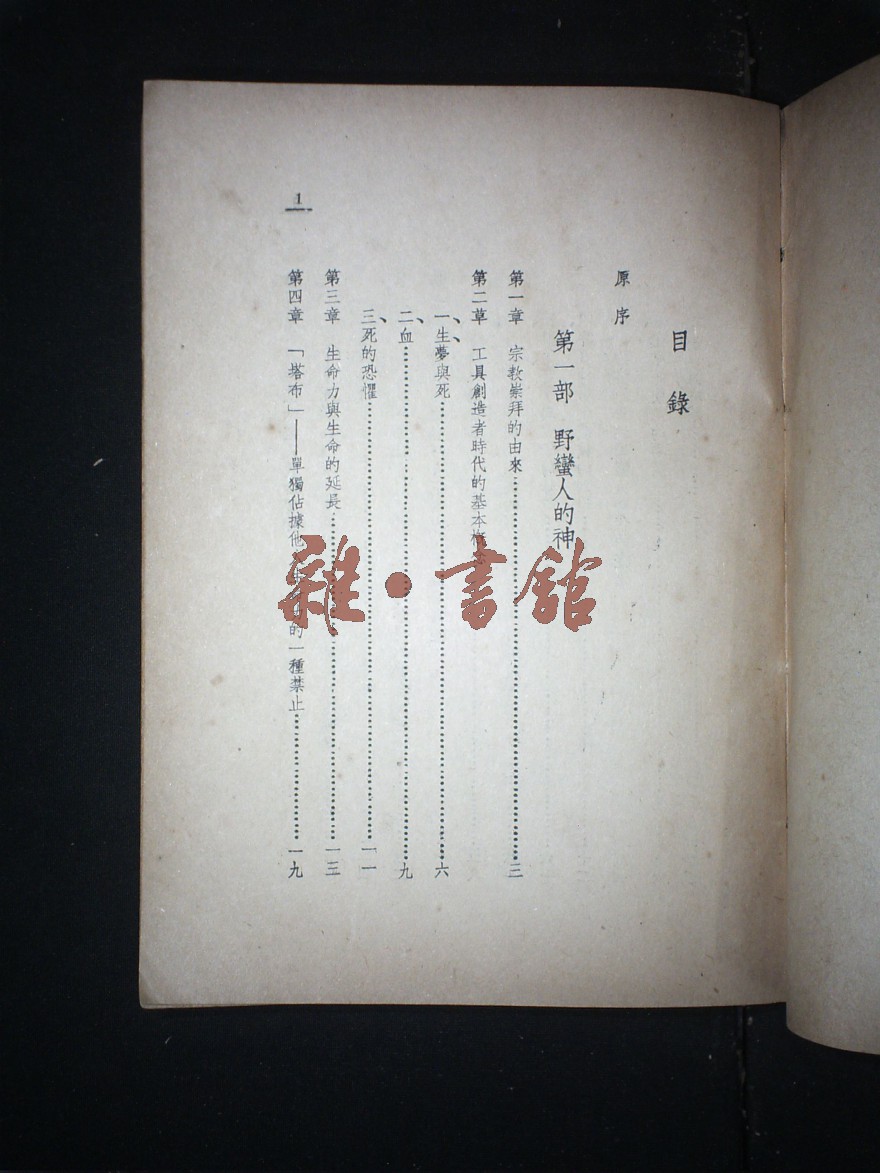 目錄
原序
第一部 野蠻人的神
第一章 宗教崇拜的由來……三
第二章 工具創造者時代的基本
一、生、夢與死……六
二、血……九
三、死的恐懼……一一
第三章 生命力與生命的延長……一三
第四章 「塔布」——單獨佔據他 的一種禁止……一九
1
雜·書館